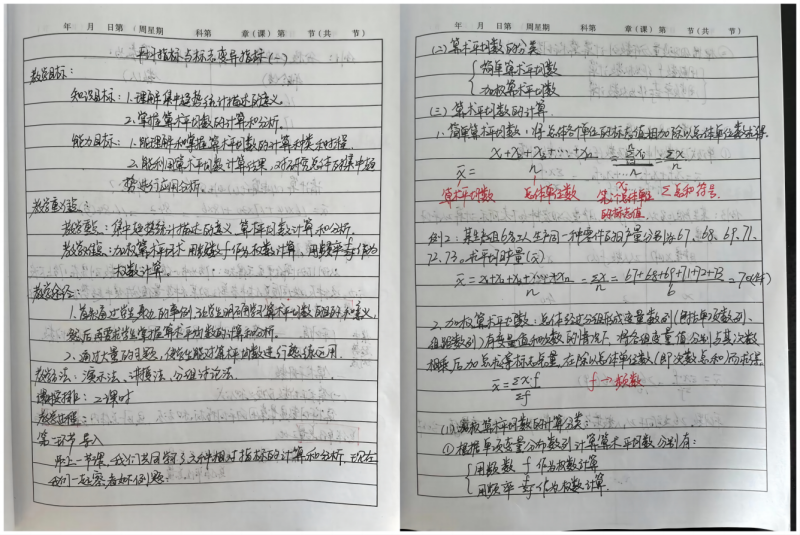 年 月 日第 周星期 科第 章(课)第 节(共 节)
平均指标与标志变异指标(二)
教学目标:
知识目标:1.理解集中趋势统计描述的意义
2.掌握算术平均数的计算和分析.
能力目标:1.能理解和掌握算术平均数的计算种类和过程.
2.能利用算术平均数计算结果,对研究总体的集中趋
势进行应用分析.
教学重难点:
教学重点:集中趋势统计描述的意义 算术平均数计算和分析.
教学难点:加权算术平均术 用频数f作为权数计算、用频率 f/Σf 作为
权数计算.
教学途径:
1.首先通过学生身边的事例,让学生明确学习算术平均数的目的和意义,
然后再要求学生掌握算术平均数的计算和分析.
2.通过大量的习题,使学生能对算术平均数进行熟练运用.
教学方法:演示法、讲授法、分组讨论法.
课程安排:2课时
教学过程:
第一环节 导入
上一节课,我们共同学习了六种相对指标的计算和分析,现在
我们一起来看如下例题.
年 月 日第 周星期 科第 章(课)第 节(共 节)
(二)算术平均数的分类
简单算术平均数
加权算术平均数
(三)算术平均数的计算.
1.简单算术平均数:将总体各单位的标志值相加除以总体单位数求得.
x̄ = (x₁+x₂+x₃+……+xₙ)/n = Σxᵢ/n = Σx/n
算术平均数 总体单位数 xᵢ 某个总体单位的标志值 Σ总和符号.
例2:某生产组6名工人生产同一种零件的日产量分别为67、68、69、71、
72、73。求平均日产量(x̄)
x̄ = (x₁+x₂+x₃+……+xₙ)/n = Σx/n = (67+68+69+71+72+73)/6 = 70(件)
2.加权算术平均数:总体经过分组形成变量数列(包括单项数列、
组距数列)有变量值和次数的情况下,将各组变量值分别与其次数
相乘后加总求得标志总量,在除以总体单位数(即次数总和)而求得.
x̄ = Σx·f/Σf f→频数
(1)加权算术平均数的计算分类:
①根据单项变量分布数列计算算术平均数分别有:
用频数 f 作为权数计算
用频率 f/Σf 作为权数计算.